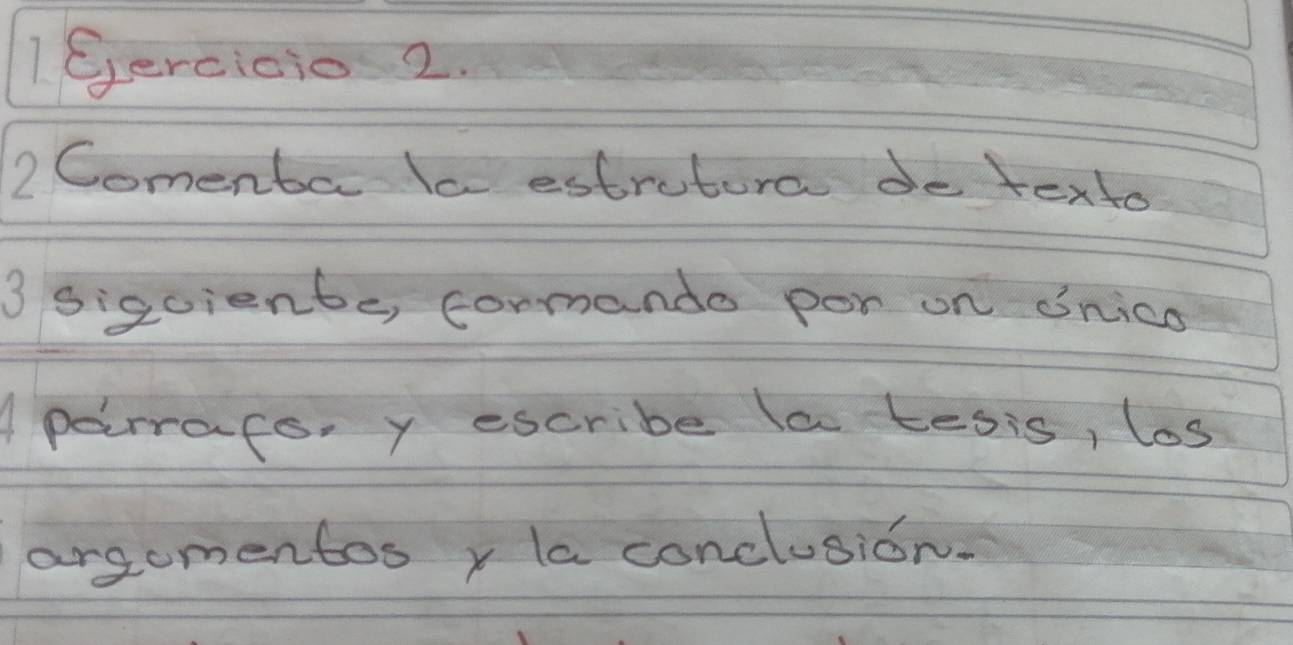 1 Ejercicio 2.
2 Comenta la estrutura de texto
3 siguiente, formando por un único
4 párrafo. y escribe la tesis, los
argumentos y la conclusión.